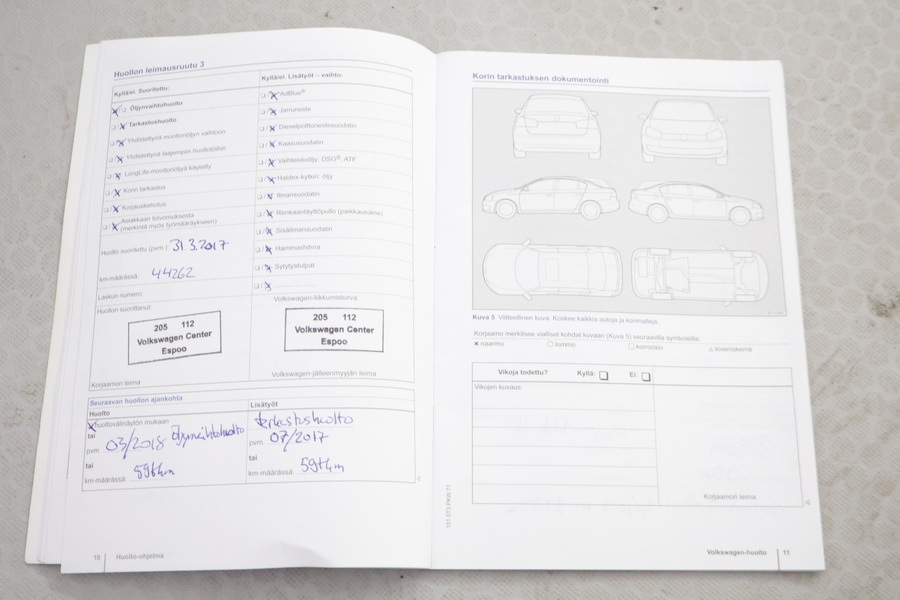 Huollon leimausruutu 3
Kyllä/ei. Suoritettu:
Öljynvaihtohuolto
Tarkastushuolto
Yhdistettynä moottoriöljyn vaihtoon
Yhdistettynä laajempiin huoltotöihin
LongLife-moottoriöljyä käytetty
Korin tarkastus
Korjauskehotus
Asiakkaan toivomuksesta
(merkintä myös työmääräykseen)
Huolto suoritettu (pvm.) 31.3.2017
km-määrässä: 44262
Laskun numero:
Huollon suorittanut:
205 112
Volkswagen Center
Espoo
Korjaamon leima
Kyllä/ei. Lisätyöt – vaihto:
AdBlue®
Jarruneste
Dieselpolttonestesuodatin
Kaasusuodatin
Vaihteistoöljy: DSG®, ATF
Haldex-kytkin: öljy
Ilmansuodatin
Renkaantäyttöpullo (paikkausaine)
Sisäilmansuodatin
Hammashihna
Sytytystulpat
Volkswagen-liikkumisturva:
205 112
Volkswagen Center
Espoo
Volkswagen-jälleenmyyjän leima
Seuraavan huollon ajankohta
Huolto
huoltovälinäytön mukaan
tai
pvm. 03/2018 Öljynvaihtohuolto
tai
km-määrässä: 59tkm
Lisätyöt
tarkastushuolto
pvm. 07/2017
tai
km-määrässä: 59tkm
Huolto-ohjelma
Korin tarkastuksen dokumentointi
Kuva 5 Viitteellinen kuva: Koskee kaikkia autoja ja korimalleja.
Korjaamo merkitsee vialliset kohdat kuvaan (Kuva 5) seuraavilla symboleilla:
naarmu lommo korroosio kiveniskemä
Vikoja todettu? Kyllä: Ei:
Vikojen kuvaus:
Korjaamon leima
Volkswagen-huolto 11